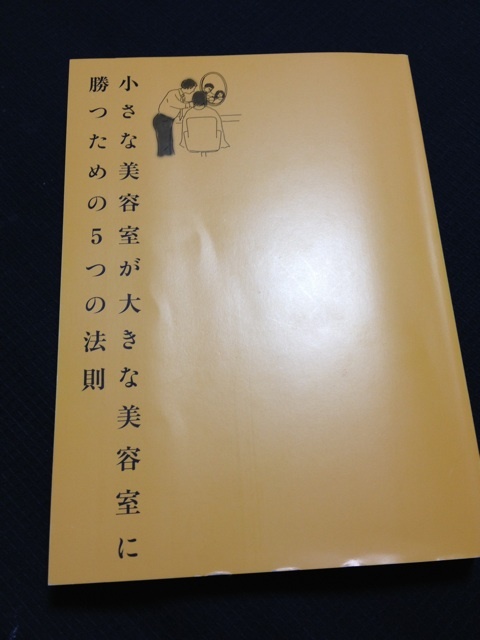 小さな美容室が大きな美容室に
勝つための5つの法則